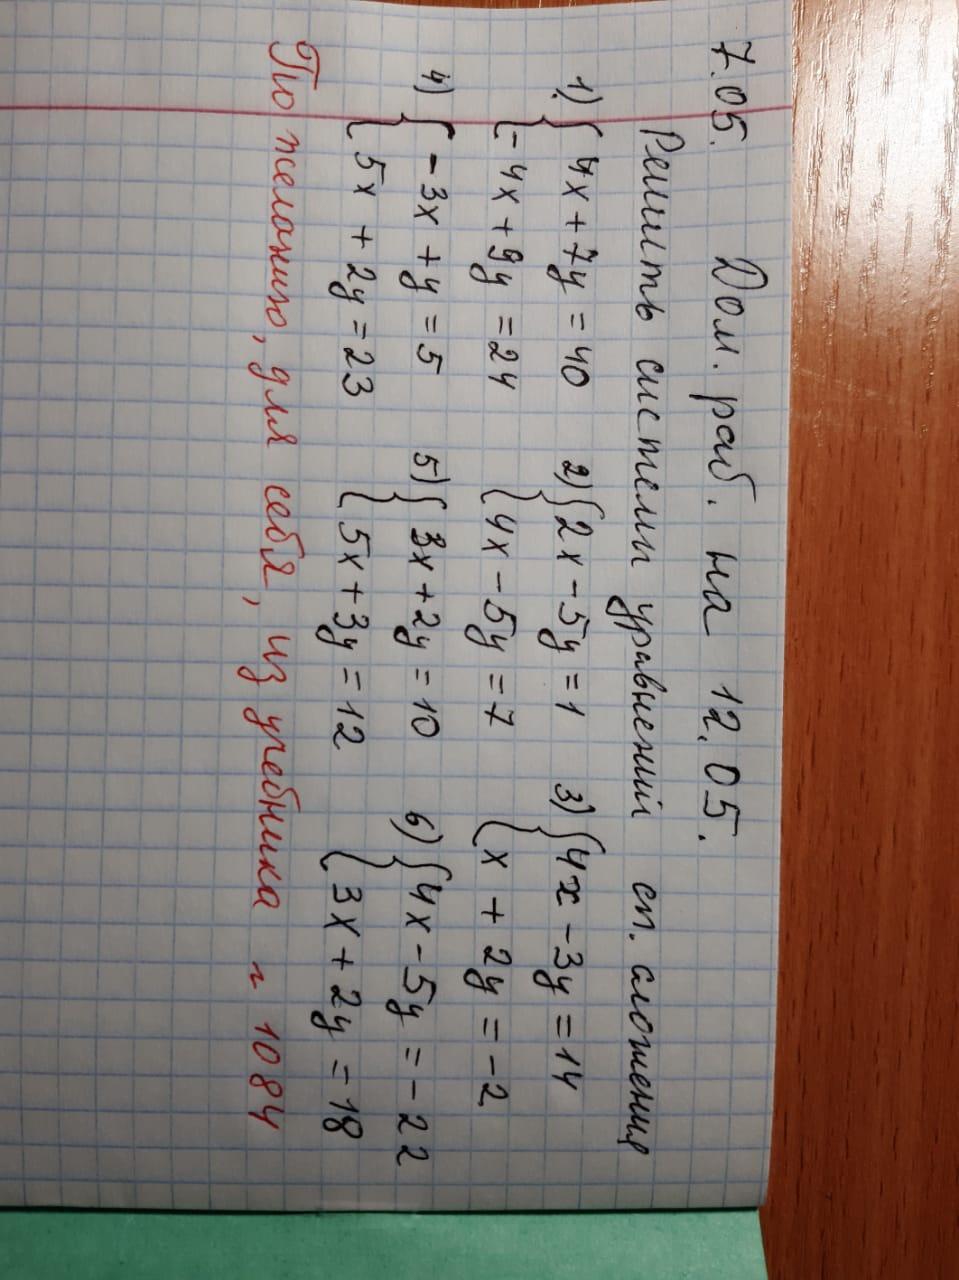 7.05. Дом. раб. на 12.05.
Решить системы уравнений сп. сложения
1) { 4x + 7y = 40 2) { 2x - 5y = 1 3) { 4x - 3y = 14
{ - 4x + 9y = 24 { 4x - 5y = 7 { x + 2y = -2
4) { - 3x + y = 5 5) { 3x + 2y = 10 6) { 4x - 5y = - 22
{ 5x + 2y = 23 { 5x + 3y = 12 { 3x + 2y = 18
По желанию, для себя, из учебника № 1084